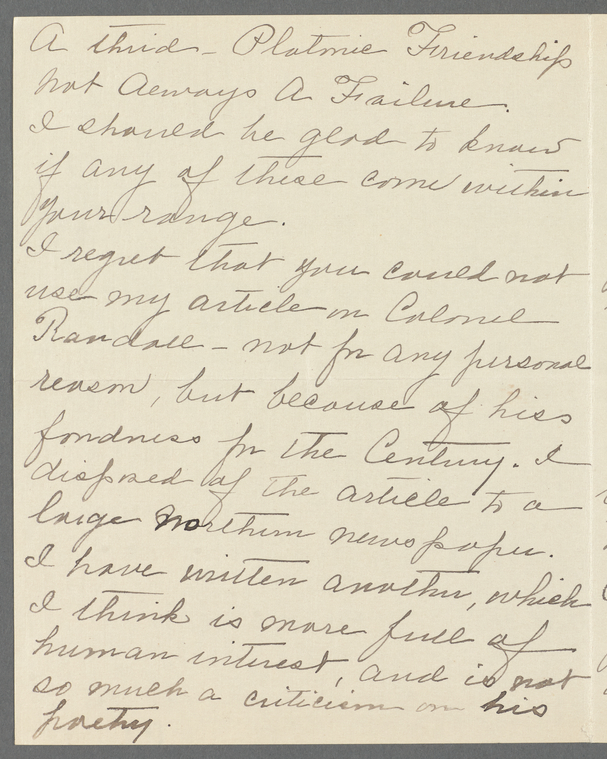 A third - Platonic Friendship
not Always A Failure.
I should be glad to know
if any of these come within
your range.
I regret that you could not
use my article on Colonel
Randall - not for any personal
reason, but because of his
fondness for the Century. I
disposed of the article to a
large northern newspaper.
I have written another, which
I think is more full of
human interest, and is not
so much a criticism on his
poetry.